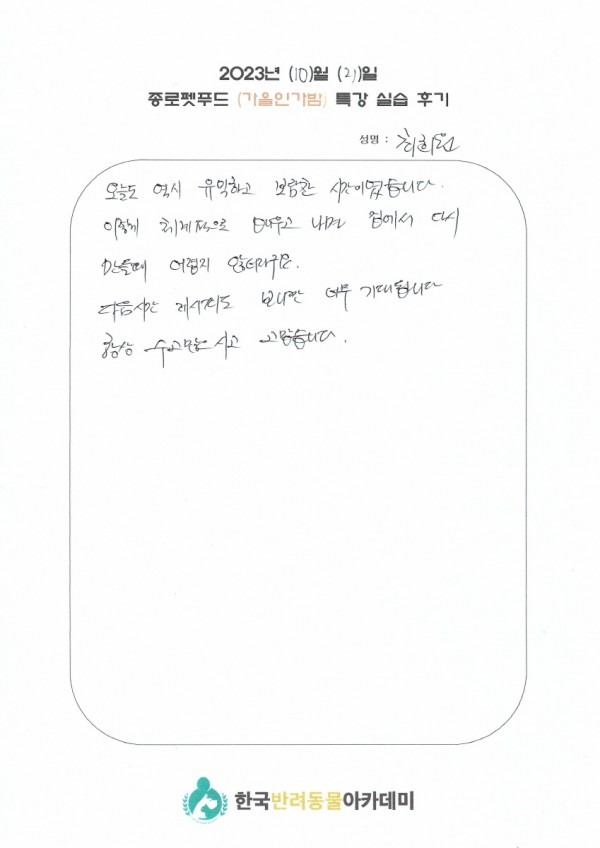 2023년 (10)월 (21)일
종로펫푸드 (가을인가밤) 특강 실습 후기
성명 : 최희원
오늘도 역시 유익하고 보람찬 시간이었습니다.
이렇게 체계적으로 배우고 나면 집에서 다시
만들때 어렵지 않더라구요.
다음시간 레시피도 보니깐 너무 기대됩니다
항상 수고많으시고 고맙습니다.
한국반려동물아카데미